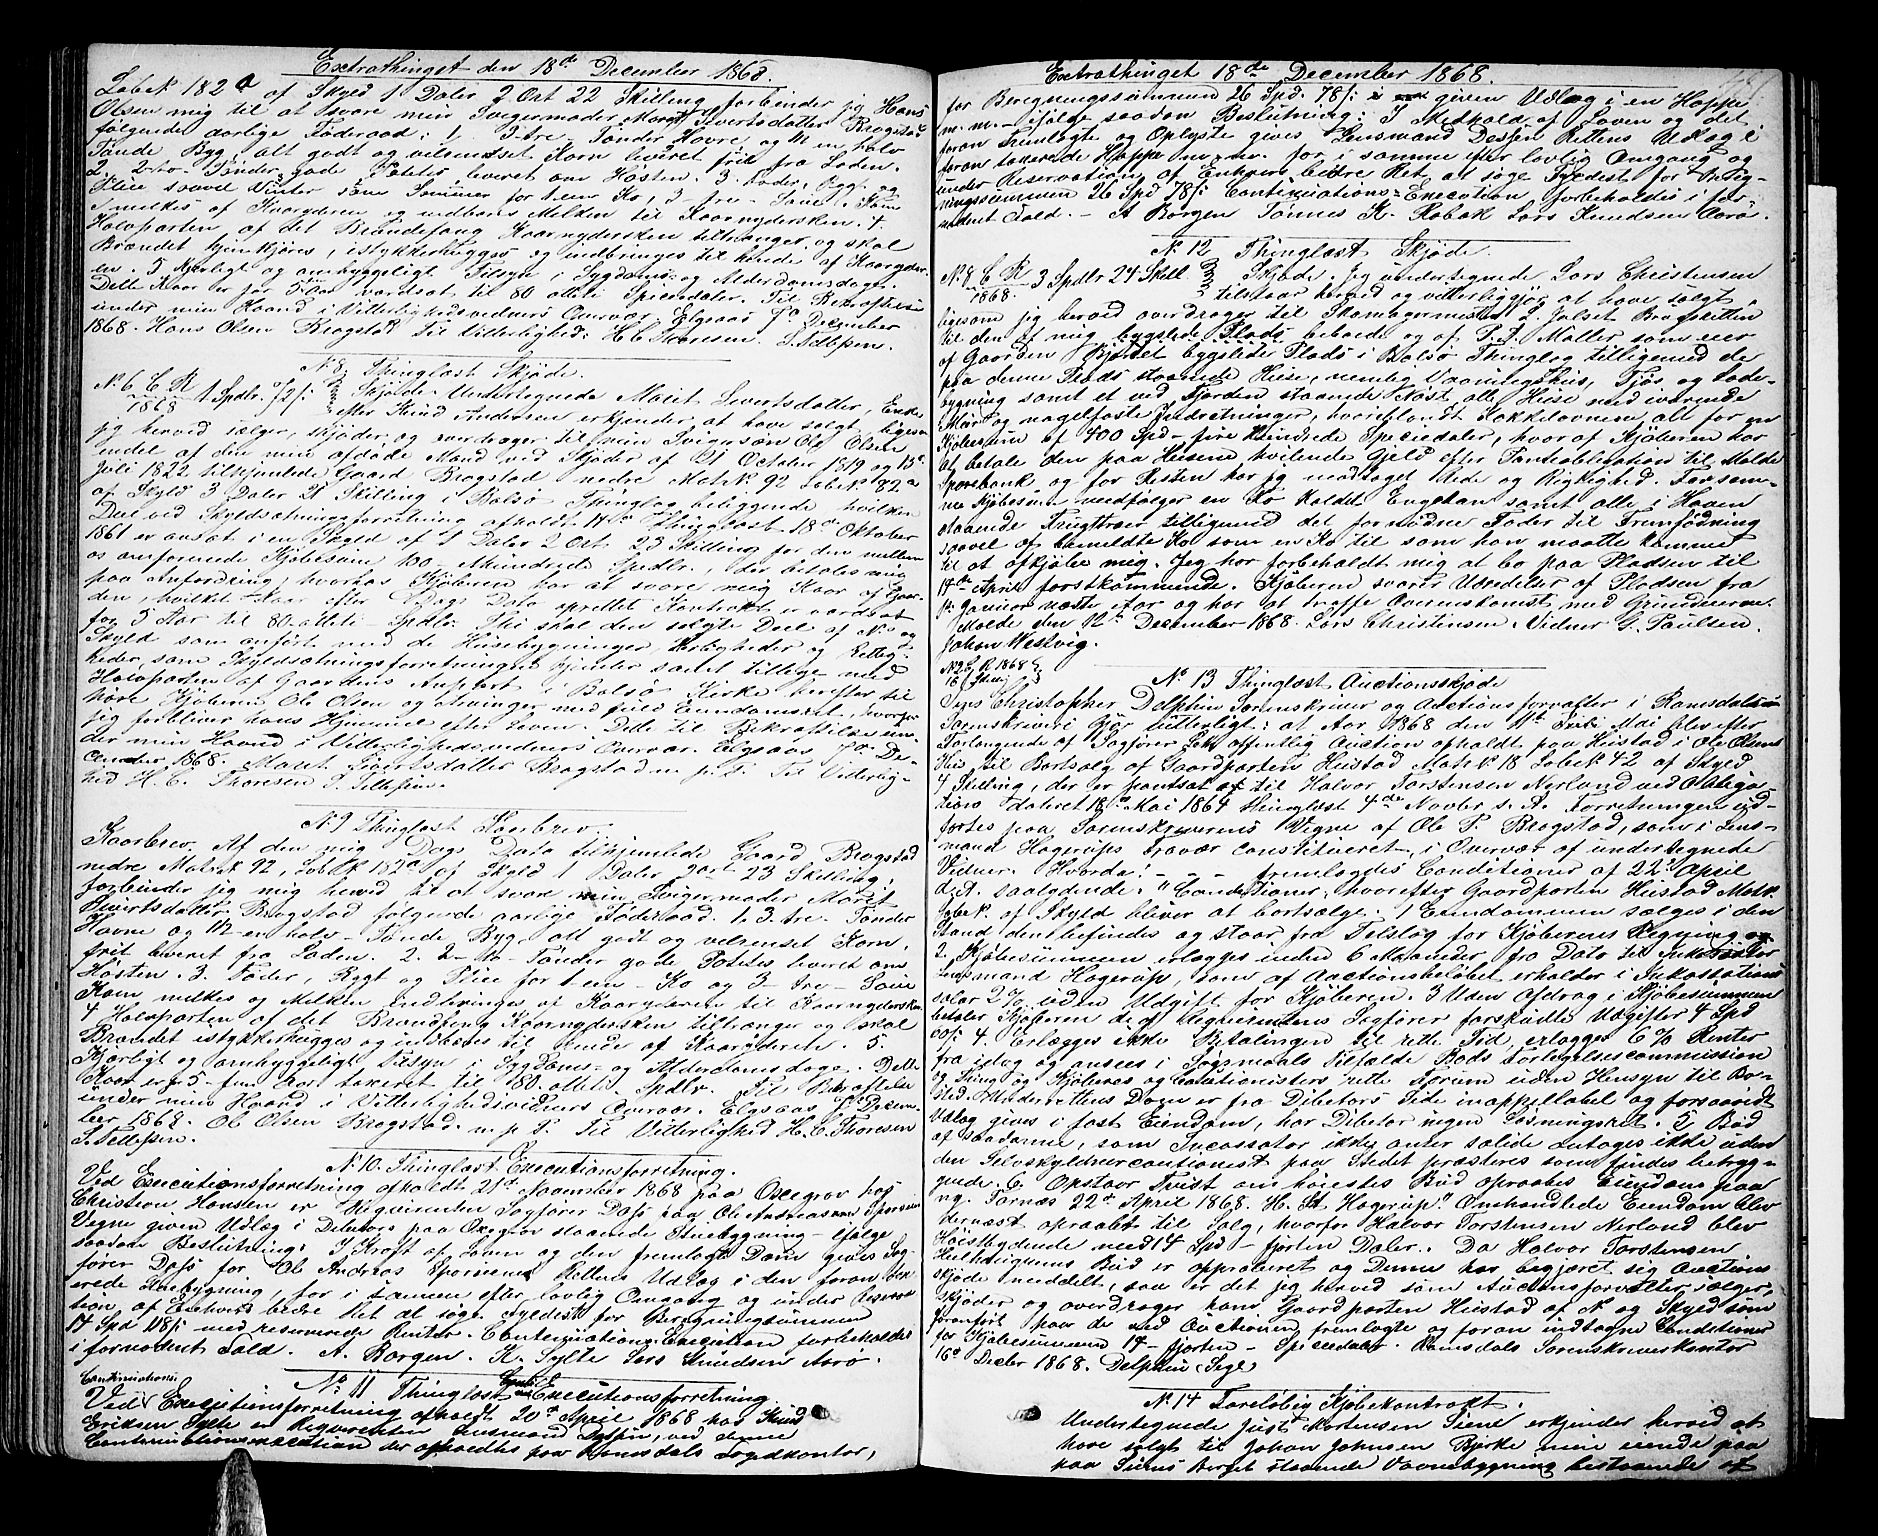 Extrathinget den 18de December 1868.
Løbe No 182a af Skyld 1 Daler 2 Ort 22 Skilling forbinder jeg Hans
Olsen mig til at svare min Svigermoder Marit Sivertsdatter Bragstad
følgende aarlige Føderaad: 1. 3 tre Tønder Havre, og ½ en halv
Tønde Byg alt godt og velrenset Korn leveret frit fra Laden.
2. 2 to Tønder gode Poteter leveret om Høsten. 3. Foder, Rygt og
Pleie saavel Vinter som Sommer for 1 een Ko, 3 tre Souer. Koen
melkes af Kaaryderen og indbæres Melken til Kaarnydersken. 4.
Halvparten af det Brændefang Kaarnydersken tiltrænger, og skal
Brændet hjemkjøres, istykkerhugges og indbringes til hende af Kaaryder-
en. 5. Kjærligt og omhyggeligt Tilsyn i Sygdoms- og Alderdomsdage.
Dette Kaar er for 5 Aar værdsat til 80 otteti Speciedaler. Til Bekræftelse
under min Haand i Vitterlighedsvidners Overvær. Elgsaas 7de December
1868. Hans Olsen Bragstad. Til Vitterlighed: H. C. Thoresen. S. Tellefsen.
No 8. Thinglæst Skjøde.
No 6 C R 1868 1 Spdlr. 72/: Skjøde. Undertegnede Marit Sivertsdatter, Enke
efter Knud Andersen erkjender at have solgt, ligesom
jeg herved sælger, skjøder og overdrager til min Svigersøn Ole Olsen
endel af den min afdøde Mand ved Skjøder af 21 October 1819 og 15de
Juli 1822 tilhjemlede Gaard Bragstad nedre Mat No 92 Løbe No 182a
af Skyld 3 Daler 21 Skilling i Bolsø Thinglag beliggende, hvilken
Deel ved Skyldsætningsforretning afholdt 14de Thinglæst 18de Oktober
1861 er ansat i en Skyld af 1 Daler 2 Ort 23 Skilling for den mellem
os omforenede Kjøbesum 100 Ethundrede Spdlr., der betales mig
paa Anfordring, hvorhos Kjøberen har at svare mig Kaar af Gaar-
den, hvilket Kaar efter Dags Dato oprettet Kontrakt er værdsat
for 5 Aar til 80 otteti Spdlr. Thi skal den solgte Deel af No og
Skyld som anført med de Husebygninger, Herligheder og Rettig-
heder, som Skyldsætningsforretningen hjemler samt tillige med
Halvparten af Gaardens Anpart i Bolsø Kirke herefter til-
høre Kjøberen Ole Olsen og Arvinger med fuld Eiendomsret, hvorfor
jeg forbliver hans Hjemmel efter Loven. Dette til Bekræftelse un-
der min Haand i Vitterlighedsvidners Overvær. Elgsaas 7de De-
cember 1868. Marit Sivertsdatter Bragstad m. p. P. Til Vitterlig-
hed H. C. Thoresen S. Tellefsen.
No 9 Thinglæst Kaarbrev.
Kaarbrev. Af den mig Dags Dato tilhjemlede Gaard Bragstad
nedre Matr No 92, Løb No 182a af Skyld 1 Daler 2 Ort 23 Skilling,
forbinder jeg mig herved til at svare min Svigermoder Marit
Sivertsdatter Bragstad følgende aarlige Føderaad. 1. 3 tre Tønder
Havre og ½ en halv Tønde Byg, alt godt og velrenset Korn,
frit leveret fra Laden. 2. 2 to Tønder gode Poteter leveret om
Høsten. 3. Foder, Rygt og Pleie for 1 een Ko og 3 tre Souer
Koen melkes og Melken indbringes af Kaaryderen til Kaarnydersken
4 Halvparten af det Brændfang Kaarnydersken tiltrænger og skal
Brændet istykkerhugges og indbæres til hende af Kaaryderen. 5.
Kjærligt og omhyggeligt Tilsyn i Sygdoms- og Alderdomsdage. Dette
Kaar er for 5 fem Aar taxeret til 80 otteti Spdlr. Til Bekræftelse
under min Haand i Vitterlighedsvidners Overvær. Elgsaas 7de Decem-
ber 1868. Ole Olsen Bragstad m. p. P. Til Vitterlighed H. C. Thoresen
S. Tellefsen.
No 10. Thinglæst Executionsforretning.
Ved Executionsforretning afholdt 21de November 1868 paa Oxegrov hos
Christen Hansen er Requirenten Sagfører Dass paa Ole Andreas Sporsems
Vegne given Udlæg i Debitors paa Oxegrov staaende Stuebygning ifølge
saadan Beslutning: I Kraft af Loven og den fremlagte Dom gives Sag-
fører Dass for Ole Andreas Sporsems Rettens Udlæg i den foran tax-
erede Stuebygning, for i samme efter lovlig Omgang og under Reserva-
tion af Enhvers bedre Ret at søge Fyldest for Beregningssummen
14 Spd 118/: med reserverede Renter. Continuations Execution forbeholdes
i fornødent Fald. A. Borgen. K. Sylte Lars Knudsen Aarø.
No 11 Thinglæst Executionsforretning
Continuations
Ved Executionsforretning afholdt 20de April 1868 hos Knud
Eriksen Sylte er Requirenten Lensmand Dessen, ved denne
Continuationsexecution der afholdtes paa Romsdals Fogdkontor,
Extrathinget 18de December 1868.
for Beregningssummen 26 Spd. 78/: given Udlæg i en Hoppe
m. m. ifølge saadan Beslutning: I Medhold af Loven og det
foran Fremlagte og Oplyste gives Lensmand Dessen Rettens Udlæg i
foran taxerede Hoppe m. m. for i samme efter lovlig Omgang og
under Reservation af Enhvers bedre Ret, at søge Fyldest for Bereg-
ningssummen 26 Spd 78/: Continuations-Execution forbeholdes i for-
nødent Fald. A Borgen Tønnes K. Robak Lars Knudsen Aarø.
No 12 Thinglæst Skjøde.
No 8 C R 1868. 3 Spdlr 24 Skill Skjøde. Jeg undertegnede Lars Christensen
tilstaar herved og vitterliggjør at have solgt
ligesom jeg herved overdrager til Skomagermester L. Jalset Bragskitten
til den af mig bygslede Plads beboede og af P. J. Møller som eier
af Gaarden bygslede Plads i Bolsø Thinglag tilligemed de
paa denne Plads staaende Huse, nemlig Vaaningshus, Fjøs og Lade-
bygning samt et ved Fjorden staaende Nøst, alle Huse med iværende
Mur og nagelfaste Indretninger, heriblandt Kakkelovnene alt for en
Kjøbesum af 400 Spd fire Hundrede Speciedaler, hvoraf Kjøberen har
at betale den paa Husene hvilende Gjeld efter Panteobligation til Molde
Sparebank og for Resten har jeg modtaget Rede og Rigtighed. I oven-
nævnte Kjøbesum medfølger en Ko kaldet Engekan samt alle i Haven
staaende Frugttræer tilligemed det fornødne Foder til Fremfødning
saavel af bemeldte Ko som en Ko til som han maatte komme
til at afkjøbe mig. Jeg har forbeholdt mig at bo paa Pladsen til
14de April førstkommende. Kjøberen svarer Udredelser af Pladsen fra
1ste Januar næste Aar og har at træffe Overenskomst med Grundeieren.
Molde den 12te December 1868. Lars Christensen. Vidner G. Paulsen.
Johan Westvig.
No 13 Thinglæst Auctionsskjøde
Jens Christopher Delphin Sorenskriver og Auctionsforvalter i Romsdalens
Sorenskriveri Gjør vitterligt: at Aar 1868 den 11te Mai blev efter
Forlangende af Sagfører offentlig Auction afholdt paa Hustad i Ole Olsens
Hus til Bortsalg af Gaardparten Hustad Mat No 18 Løbe No 42 af Skyld
4 Skilling, der er pantsat af til Halvor Torstensen Nerland ved Obliga-
tion dateret 18de Mai 1864 thinglæst 4de Novbr s. A. Forretningen ud-
førtes paa Sorenskriverens Vegne af Ole P. Bragstad, som i Lens-
mand Hagerups Fravær constitueret, i Overvær af undertegnede
Vidner. Hvorda: - - - fremlagdes Conditioner af 22de April
d. A. saalydende: "Conditioner, hvorefter Gaardparten Hustad Mat No
Løbe No af Skyld bliver at bortsælge. 1 Eiendommen sælges i den
Stand den befindes og staar fra Tilslag for Kjøberens Regning og
2. Kjøbesummen erlægges inden 6 Maaneder fra Dato til Inkassator
Lensmand Hagerup, som af Auctionsbeløbet erholder i Inkassations
salær 2 % uden Udgift for Kjøberen. 3 Uden Afdrag i Kjøbesummen
betaler Kjøberen de af Requirentens Sagfører forskudte Udgifter 4 Spd
60/: 4. Erlægges ikke Betalingen til rette Tid, erlægges 6 % Renter
fra idag og ansees i Søgsmaals Tilfælde Bods Forligelsescommission
og Thing og Kjøberes og Cautionisters rette Forum uden Hensyn til Bo-
sted. Underrettens Dom er fra Debitors Side inappellabel og forsaavidt
Udlæg gives i fast Eiendom, har Debitor ingen Løsningsret. 5 Bud
af Saadanne, som Incassator ikke anser solide antages ikke uden
den Selvskyldnercautionist paa Stedet præsteres som findes betryg-
gende. 6. Opstaar Tvist om høieste Bud opraabes Eiendommen paa
ny. Tornæs 22de April 1868. H. St Hagerup". Omhandlede Eiendom blev
dernæst opraabt til Salg, hvorfor Halvor Torstensen Nerland blev
Høistbydende med 14 Spd fjorten Daler. Da Halvor Torstensen
Bud er approberet og Denne har begjæret sig Auctions
skjøde meddelt, saa er det jeg herved som Auctionsforvalter sælger,
skjøder og overdrager ham Gaardparten Hustad af No og Skyld som
foranført paa de ved Auctionen fremlagte og foran indtagne Conditioner
for Kjøbesummen 14 fjorten Speciedaler. Romsdals Sorenskriverkontor
16de Decbr 1868. Delphin (Segl)
No 14 Foreløbig Kjøbekontrakt.
Undertegnede Just Mortensen erkjender herved at
have solgt til Johan Johnsen Bjerke min eiende paa
paa Berget staaende Vaanebygning bestaaende af